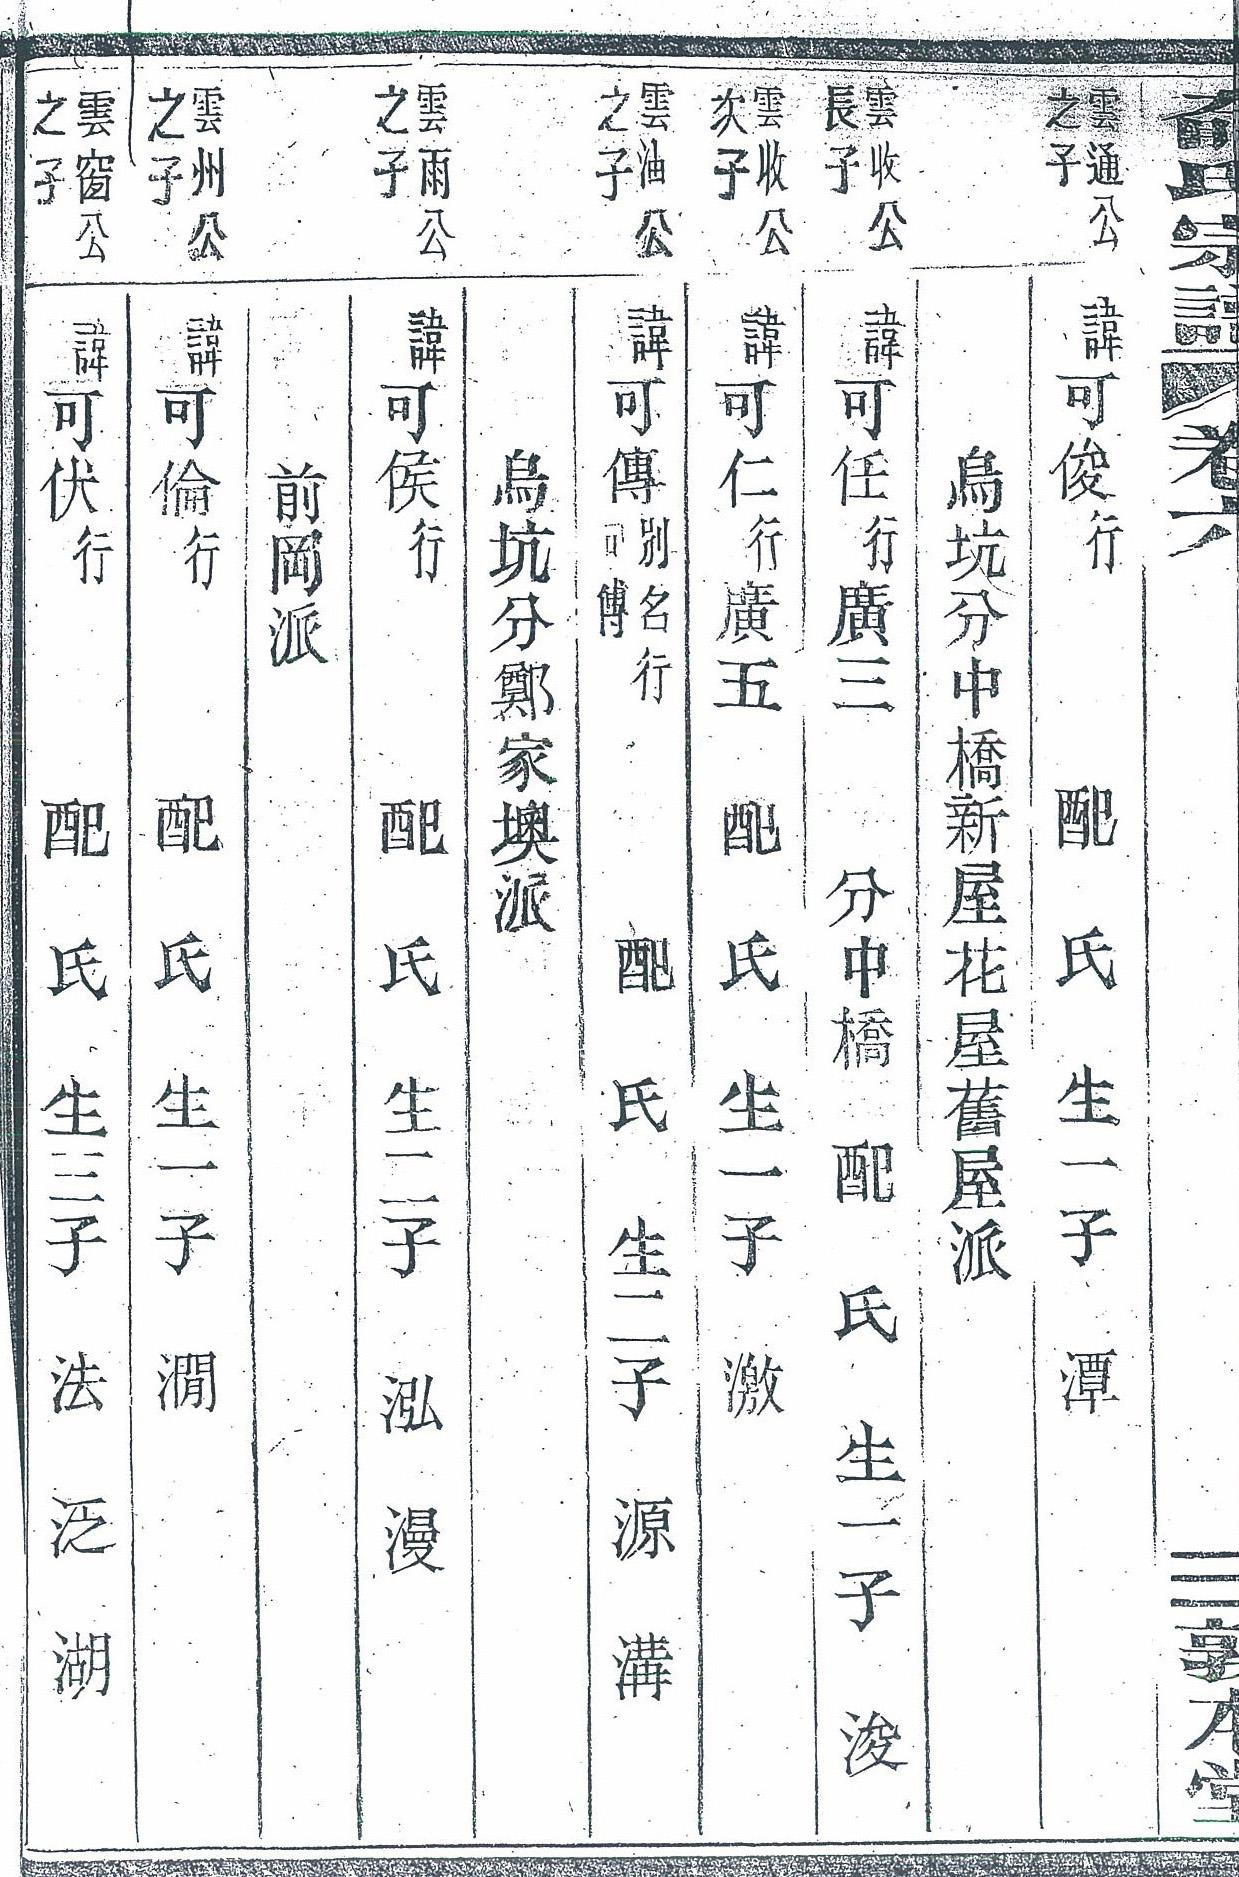 氏宗譜
卷六
三
敦本堂
雲通公
之子
諱可俊行 配 氏 生一子 潭
烏坑分中橋新屋花屋舊屋派
雲收公
長子
諱可任行廣三 分中橋 配 氏 生一子 浚
雲收公
次子
諱可仁行廣五 配 氏 生一子 激
雲油公
之子
諱可傳
別名行
可傅
配 氏 生二子 源 溝
烏坑分鄭家墺派
雲雨公
之子
諱可侯行 配 氏 生二子 泓 漫
前岡派
雲州公
之子
諱可倫行 配 氏 生一子 澗
雲窗公
之子
諱可伏行 配 氏 生三子 法 泛 湖